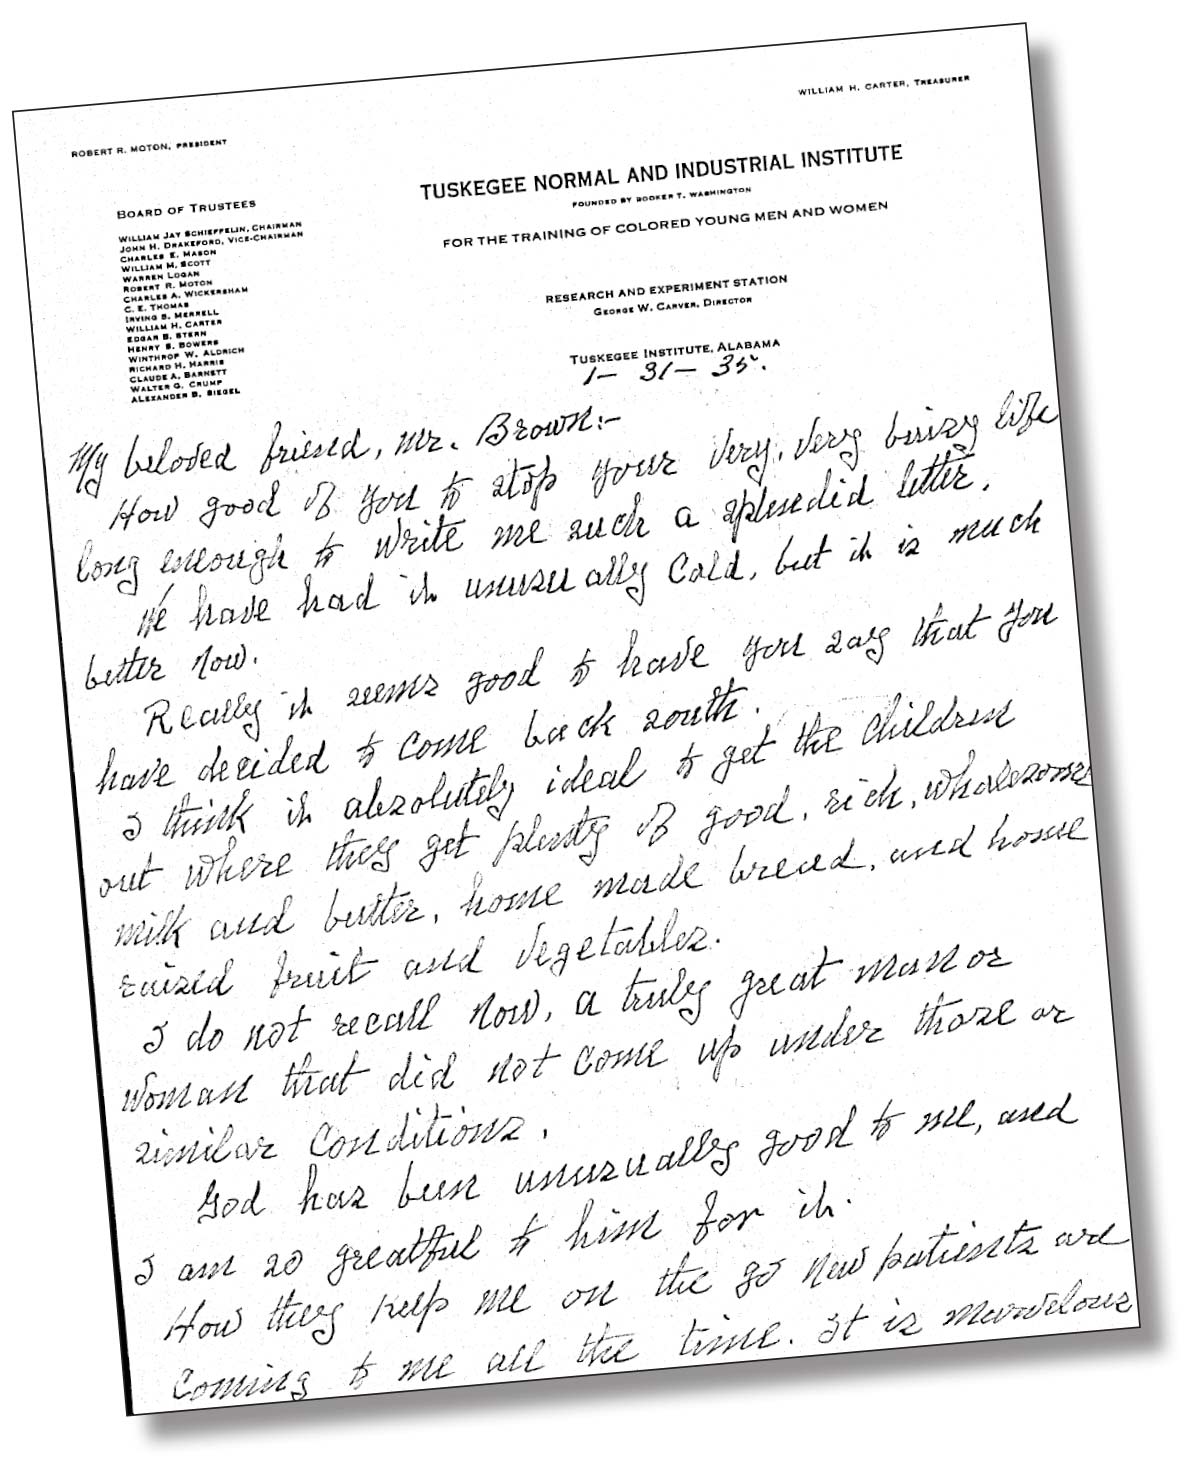 WILLIAM H. CARTER, TREASURER
ROBERT R. MOTON, PRESIDENT
TUSKEGEE NORMAL AND INDUSTRIAL INSTITUTE
FOUNDED BY BOOKER T. WASHINGTON
FOR THE TRAINING OF COLORED YOUNG MEN AND WOMEN
BOARD OF TRUSTEES
WILLIAM JAY SCHIEFFELIN, CHAIRMAN
JOHN H. DRAKEFORD, VICE-CHAIRMAN
CHARLES E. MASON
WILLIAM M. SCOTT
WARREN LOGAN
ROBERT R. MOTON
CHARLES A. WICKERSHAM
C. E. THOMAS
IRVING S. MERRELL
WILLIAM H. CARTER
EDGAR B. STERN
HENRY S. BOWERS
WINTHROP W. ALDRICH
RICHARD H. HARRIS
CLAUDE A. BARNETT
WALTER G. CRUMP
ALEXANDER B. SIEGEL
RESEARCH AND EXPERIMENT STATION
GEORGE W. CARVER, DIRECTOR
TUSKEGEE INSTITUTE, ALABAMA
1- 31- 35.
My beloved friend, Mr. Brown:-
How good of you to stop your very, very buisy life
long enough to write me such a splendid letter.
We have had it unusually cold, but it is much
better now.
Really it seems good to have you say that you
have decided to come back south.
I think it absolutely ideal to get the children
out where they get plenty of good, rich, wholesome
milk and butter, home made bread, and home
raised fruit and vegetables.
I do not recall now, a truly great man or
woman that did not come up under those or
similar conditions.
God has been unusually good to me, and
I am so greatful to him for it.
How they keep me on the go new patients are
coming to me all the time. It is marvelous